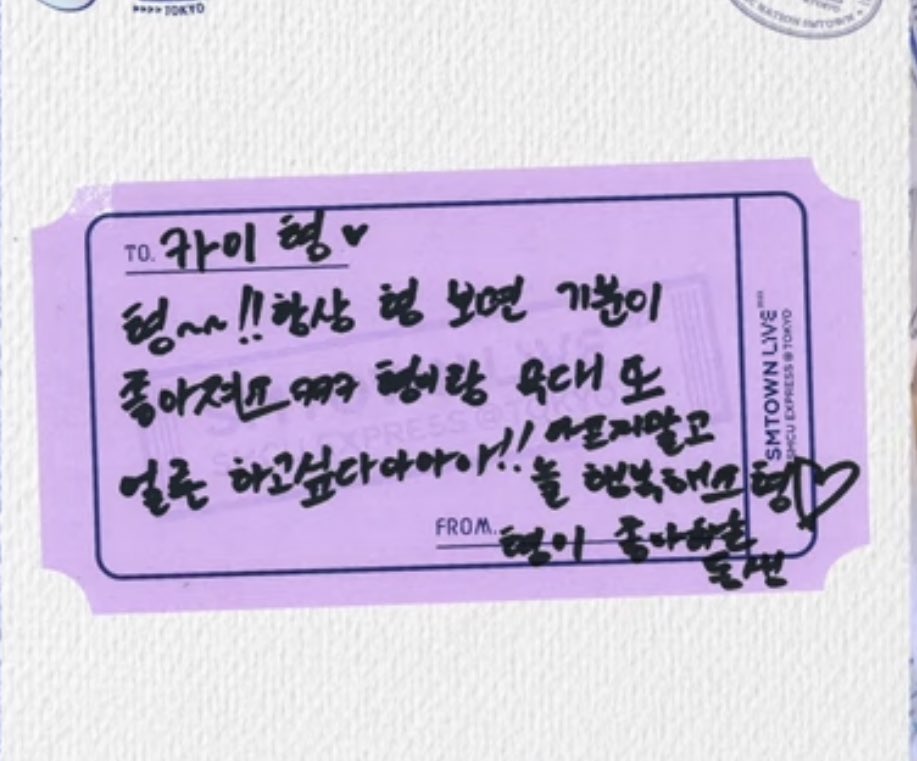 >>>> TOKYO
NATION SMTOWN
TO. 카이 형♥
형~~!! 항상 형 보면 기분이
좋아져요 ㅋㅋㅋ 형이랑 무대 또
얼른 하고싶다아아아!! 아프지말고
늘 행복해요 형♡
FROM. 형이 좋아하는
동생
SMTOWN LIVE
SMCU EXPRESS @TOKYO